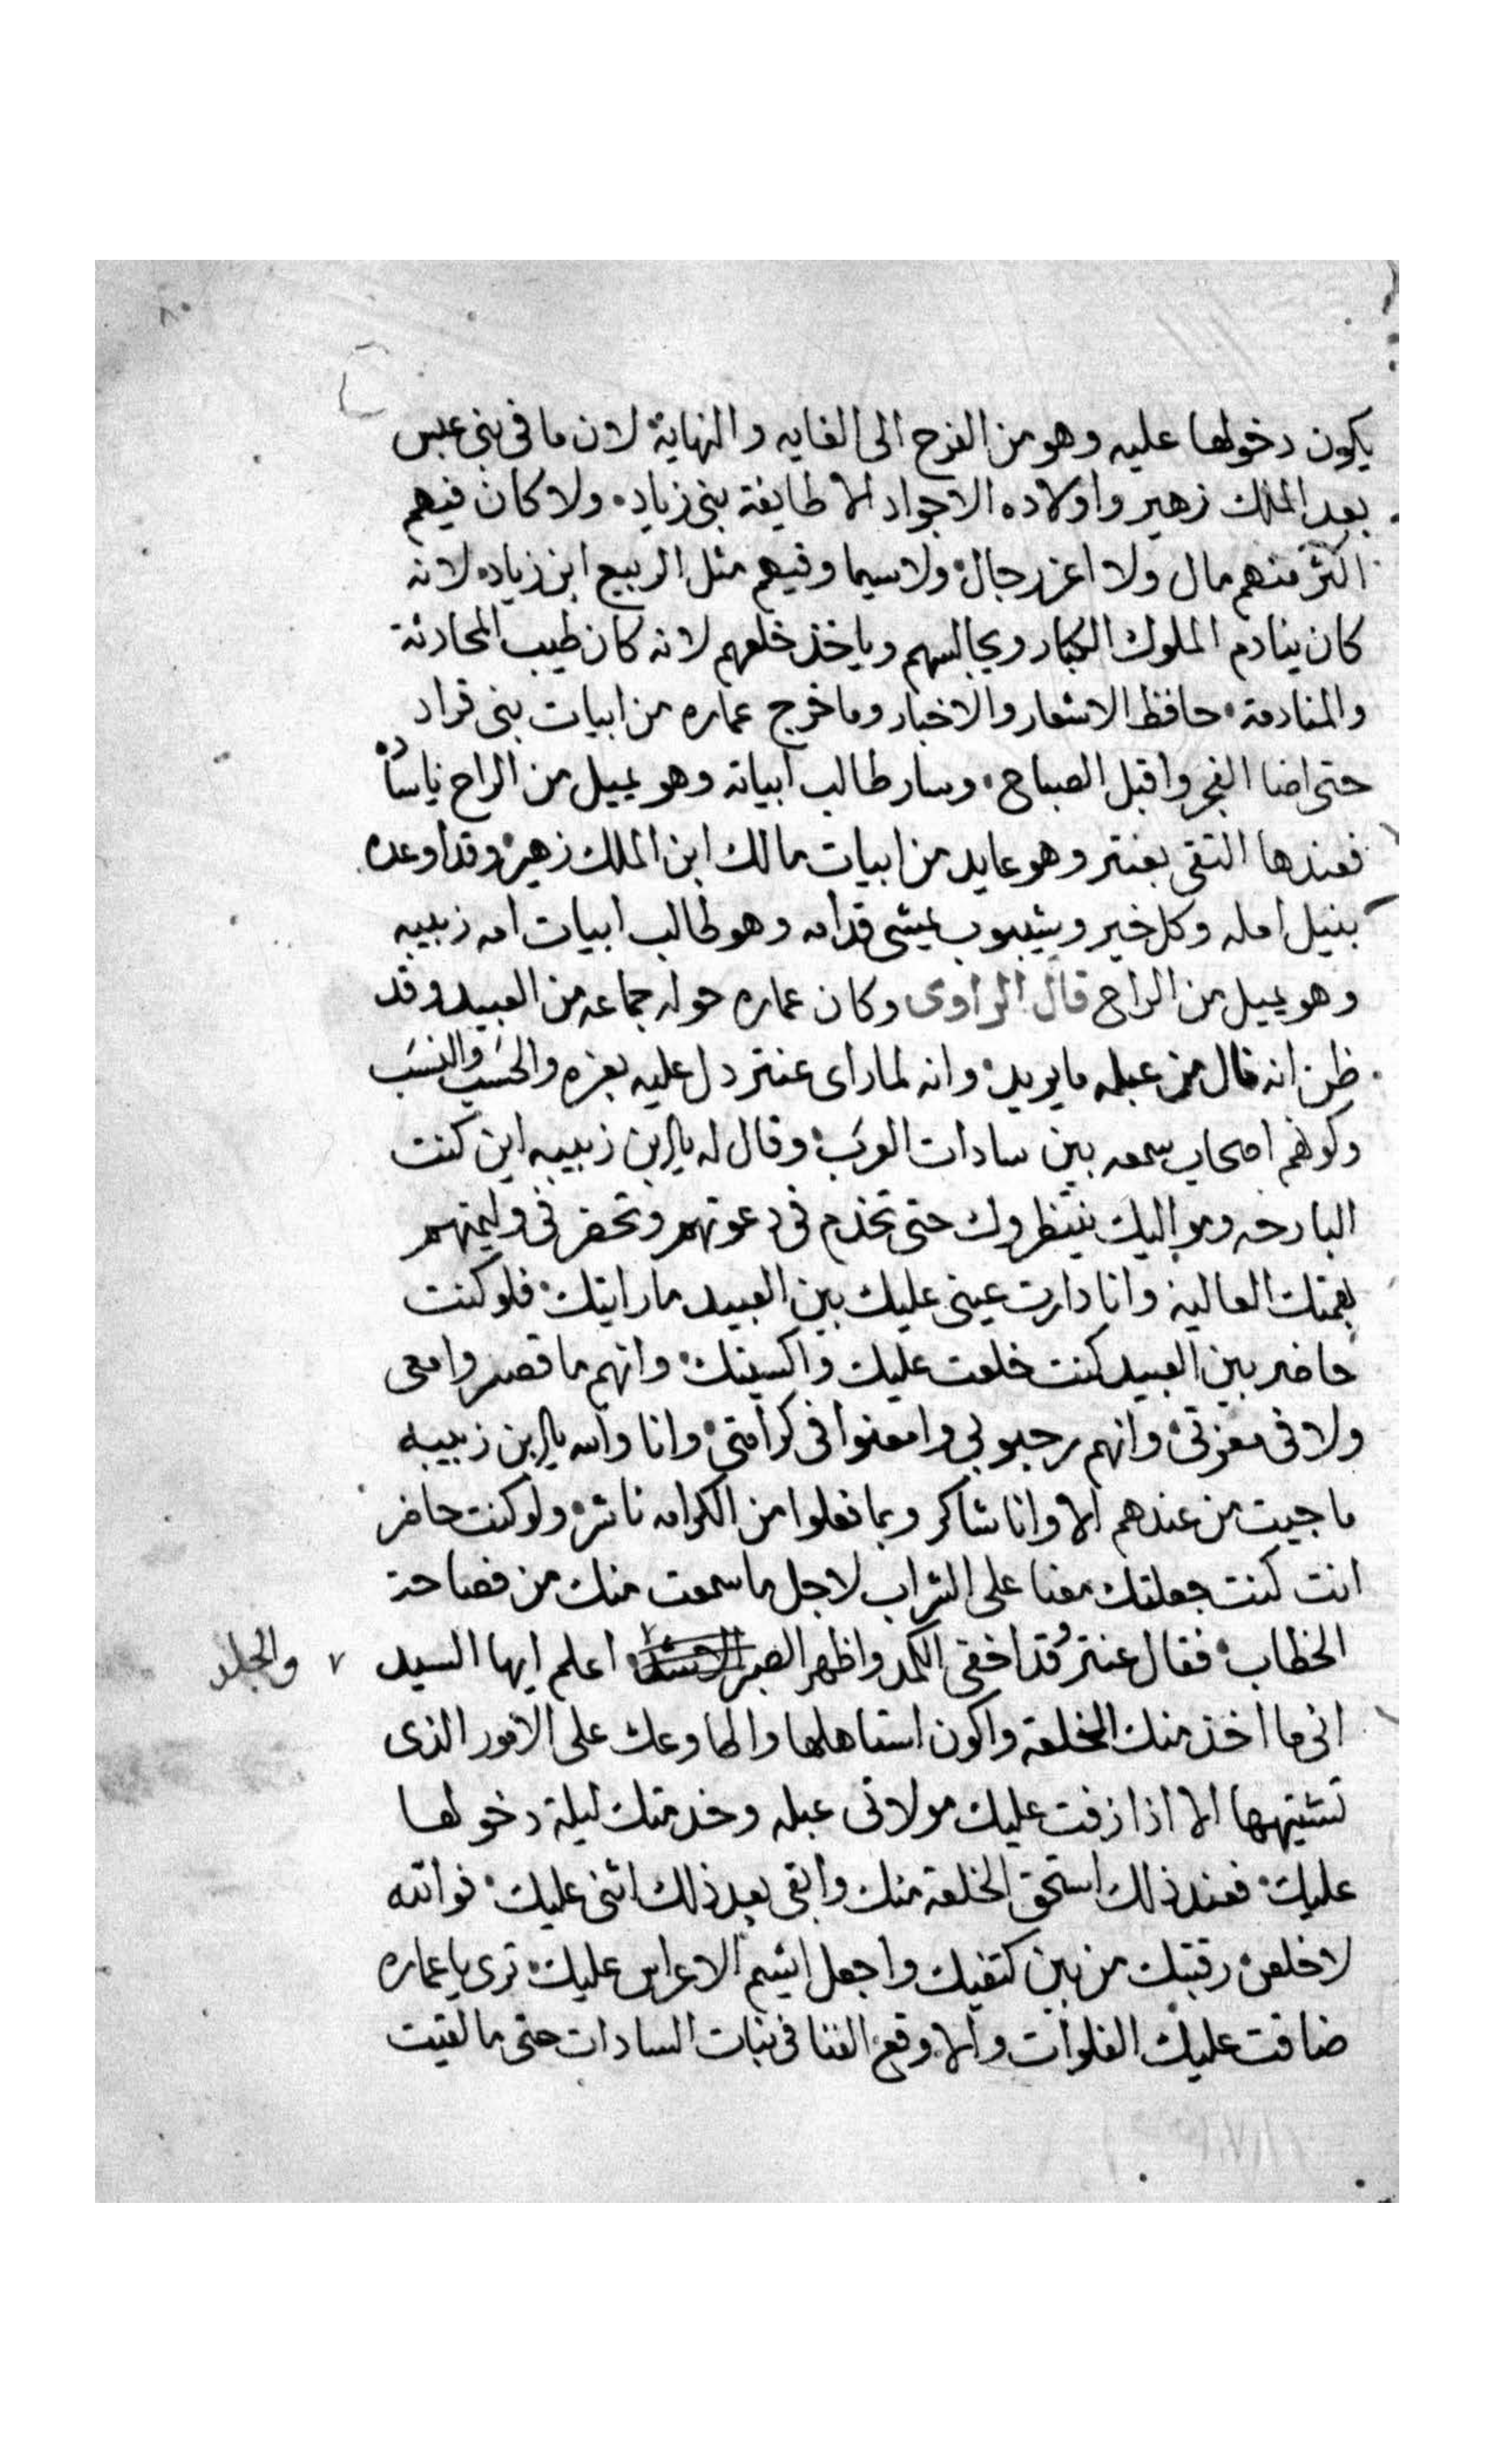 يكون دخولها عليه وهو من الفرح الى الغايه والنهاية لان ما فى بنى عبس
بعد الملك زهير واولاده الاجواد الا طايفة بنى زياد ولا كان فيهم
اكثر منهم مال ولا اعز رجال ولا سيما وفيهم مثل الربيع ابن زياد لانه
كان ينادم الملوك الكبار ويجالسهم وياخذ خلعهم لانه كان طيب المحادثة
والمنادمة حافظ الاشعار والاخبار وما خرج عماره من ابيات بنى قراد
حتى اضا الفجر واقبل الصباح وسار طالب ابياته وهو يميل من الراح
فعندها التقى بعنتر وهو عايد من ابيات مالك ابن الملك زهير وقد اوعده
بنيل امله وكل خير وشيبوب يمشى قدامه وهو طالب ابيات امه زبيبه
وهو يميل من الراح قال الراوى وكان عماره حوله جماعه من العبيد وقد
ظن انه نال من عبله ما يريد وانه لما راى عنتر دل عليه بعزه والحسب والنسب
وكونهم اصحاب سمعه بين سادات العرب وقال له يا ابن زبيبه اين كنت
البارحه ومواليك ينتظروك حتى تخدم فى دعوتهم وتحضر فى وليمتهم
بهمتك العاليه وانا دارت عينى عليك بين العبيد ما رايتك فلو كنت
حاضر بين العبيد كنت خلعت عليك واكسيتك وانهم ما قصروا معى
ولا فى معزتى وانهم رحبو بى وامعنوا فى كرامتى وانا والله يا ابن زبيبه
ما جيت من عندهم الا وانا شاكر وبما فعلوا من الكرامه ناشر ولو كنت حاضر
انت كنت جعلتك معنا على الشراب لاجل ما سمعت منك من فصاحة
الخطاب فقال عنتر وقد اخفى الكمد واظهر الصبر والجلد اعلم ايها السيد
انى ما اخذ منك الخلعه واكون استاهلها واطاوعك على الامور الذى
تشتهيها الا اذا زفت عليك مولاتى عبله وخدمتك ليلة دخولها
عليك فعند ذلك استحق الخلعة منك وابقى بعد ذلك اثنى عليك فوالله
لاخلعن رقبتك من بين كتفيك واجعل ايشم الاعراس عليك ترى يا عماره
ضاقت عليك الفلوات والا وقع الفنا فى بنات السادات حتى ما لقيت